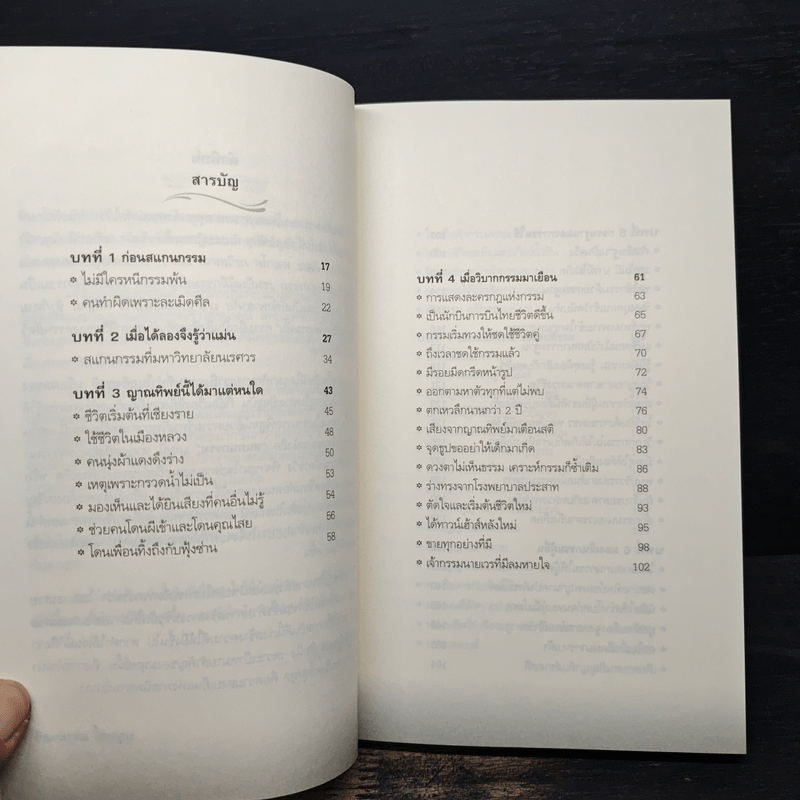 สารบัญ
บทที่ 1 ก่อนสแกนกรรม 17
* ไม่มีใครหนีกรรมพ้น 19
* คนทำผิดเพราะละเมิดศีล 22
บทที่ 2 เมื่อได้ลองจึงรู้ว่าแม่น 27
* สแกนกรรมที่มหาวิทยาลัยนเรศวร 34
บทที่ 3 ญาณทิพย์นี้ได้มาแต่หนใด 43
* ชีวิตเริ่มต้นที่เชียงราย 45
* ใช้ชีวิตในเมืองหลวง 48
* คนนุ่งผ้าแดงดึงร่าง 50
* เหตุเพราะกรวดน้ำไม่เป็น 53
* มองเห็นและได้ยินเสียงที่คนอื่นไม่รู้ 54
* ช่วยคนโดนผีเข้าและโดนคุณไสย 56
* โดนเพื่อนทิ้งถึงกับฟุ้งซ่าน 58
บทที่ 4 เมื่อวิบากกรรมมาเยือน 61
* การแสดงละครกฎแห่งกรรม 63
* เป็นนักบินการบินไทยชีวิตดีขึ้น 65
* กรรมเริ่มทวงให้ชดใช้ชีวิตคู่ 67
* ถึงเวลาชดใช้กรรมแล้ว 70
* มีรอยมีดกรีดหน้ารูป 72
* ออกตามหาตัวทุกที่แต่ไม่พบ 74
* ตกเหวลึกนานกว่า 2 ปี 76
* เสียงจากญาณทิพย์มาเตือนสติ 80
* จุดธูปขออย่าให้เด็กมาเกิด 83
* ดวงตาไม่เห็นธรรม เคราะห์กรรมก็ซ้ำเติม 86
* ร่างทรงจากโรงพยาบาลประสาท 88
* ตัดใจและเริ่มต้นชีวิตใหม่ 93
* ได้ทาวน์เฮ้าส์หลังใหม่ 95
* ขายทุกอย่างที่มี 98
* เจ้ากรรมนายเวรที่มีลมหายใจ 102